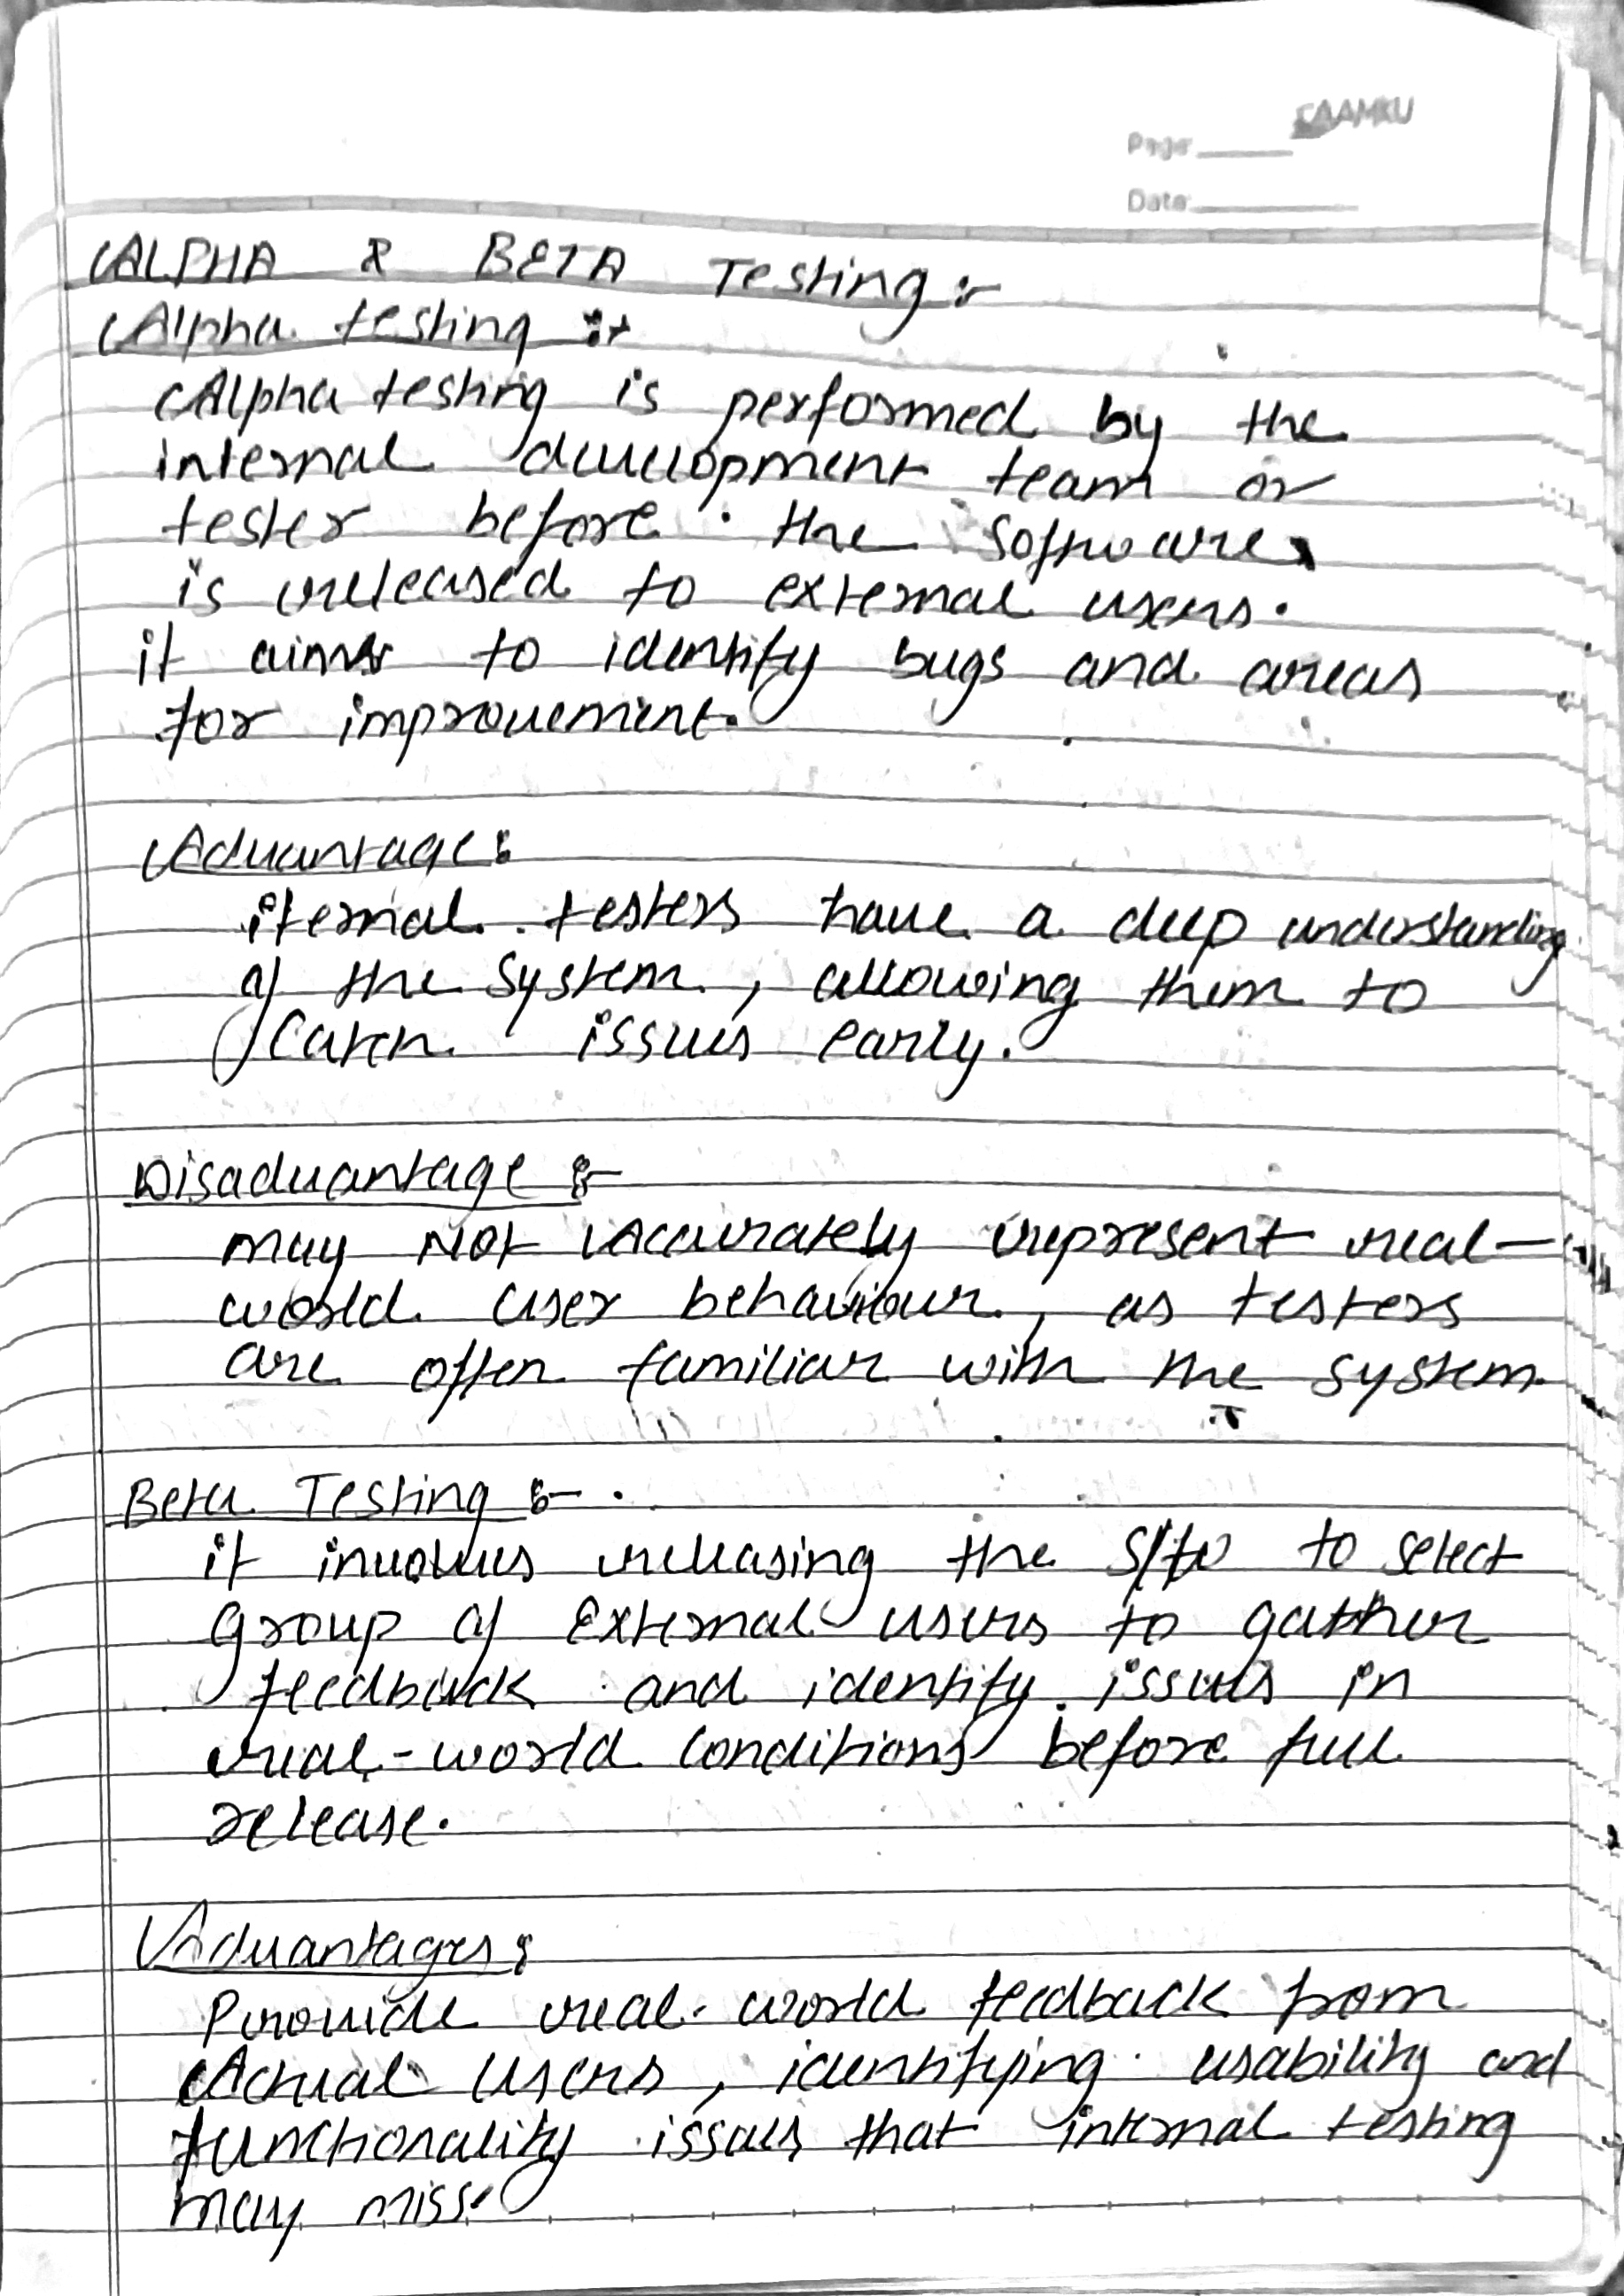 SAAMKU
Page
Date
ALPHA & BETA Testing :-
Alpha testing :-
Alpha testing is performed by the
internal development team or
tester before the software
is released to external users.
it aims to identify bugs and areas
for improvement.
Advantage :
iternal testers have a deep understanding
of the system, allowing them to
catch issues early.
Disadvantage :-
may Not Accurately represent real-
world user behaviour, as testers
are often familiar with the system
Beta Testing :-
it involves releasing the S/w to select
group of External users to gather
feedback and identify issues in
real-world conditions before full
release.
Advantages :
Provide real-world feedback from
Actual users, identifying usability and
functionality issues that internal testing
may miss.